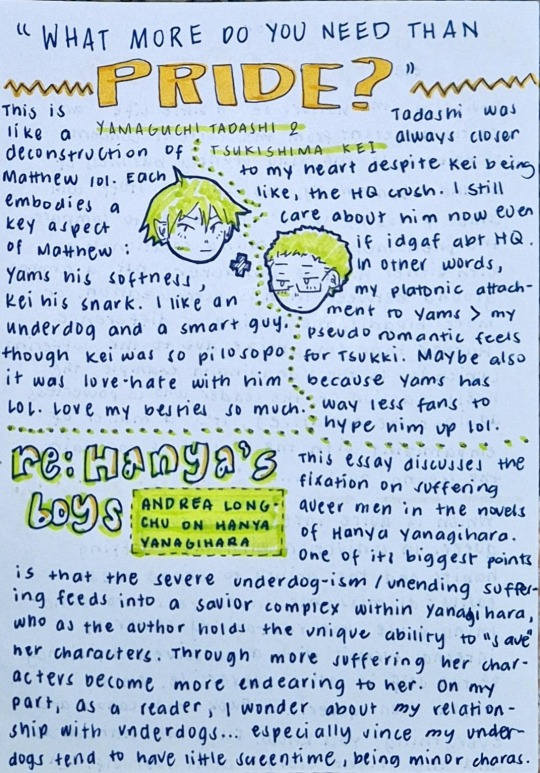 "WHAT MORE DO YOU NEED THAN
PRIDE?"
YAMAGUCHI TADASHI 2
TSUKISHIMA KEI
This is
like a
deconstruction of
Matthew lol. Each
embodies a
key aspect
of Matthew:
Yams his softness,
Kei his snark. I like an
underdog and a smart guy.
though Kei was so pilosopo
it was love-hate with him
LOL. Love my besties so much.
Tadashi was
always closer
to my heart despite Kei being
like, the HQ crush. I still
care about him now even
if idgaf abt HQ.
in other words,
my platonic attach-
ment to Yams > my
pseudo romantic feels
for Tsukki. Maybe also
because Yams has
way less fans to
hype him up lol.
re: Hanya's
boys
ANDREA LONG-
CHU ON HANYA
YANAGIHARA
This essay discusses the
fixation on suffering
queer men in the novels
of Hanya Yanagihara.
One of its biggest points
is that the severe underdog-ism/unending suffer-
ing feeds into a savior complex within Yanagihara,
who as the author holds the unique ability to "save"
her characters. Through more suffering her char-
acters become more endearing to her. On my
part, as a reader, I wonder about my relation-
ship with underdogs... especially since my under-
dogs tend to have little screentime, being minor charas.